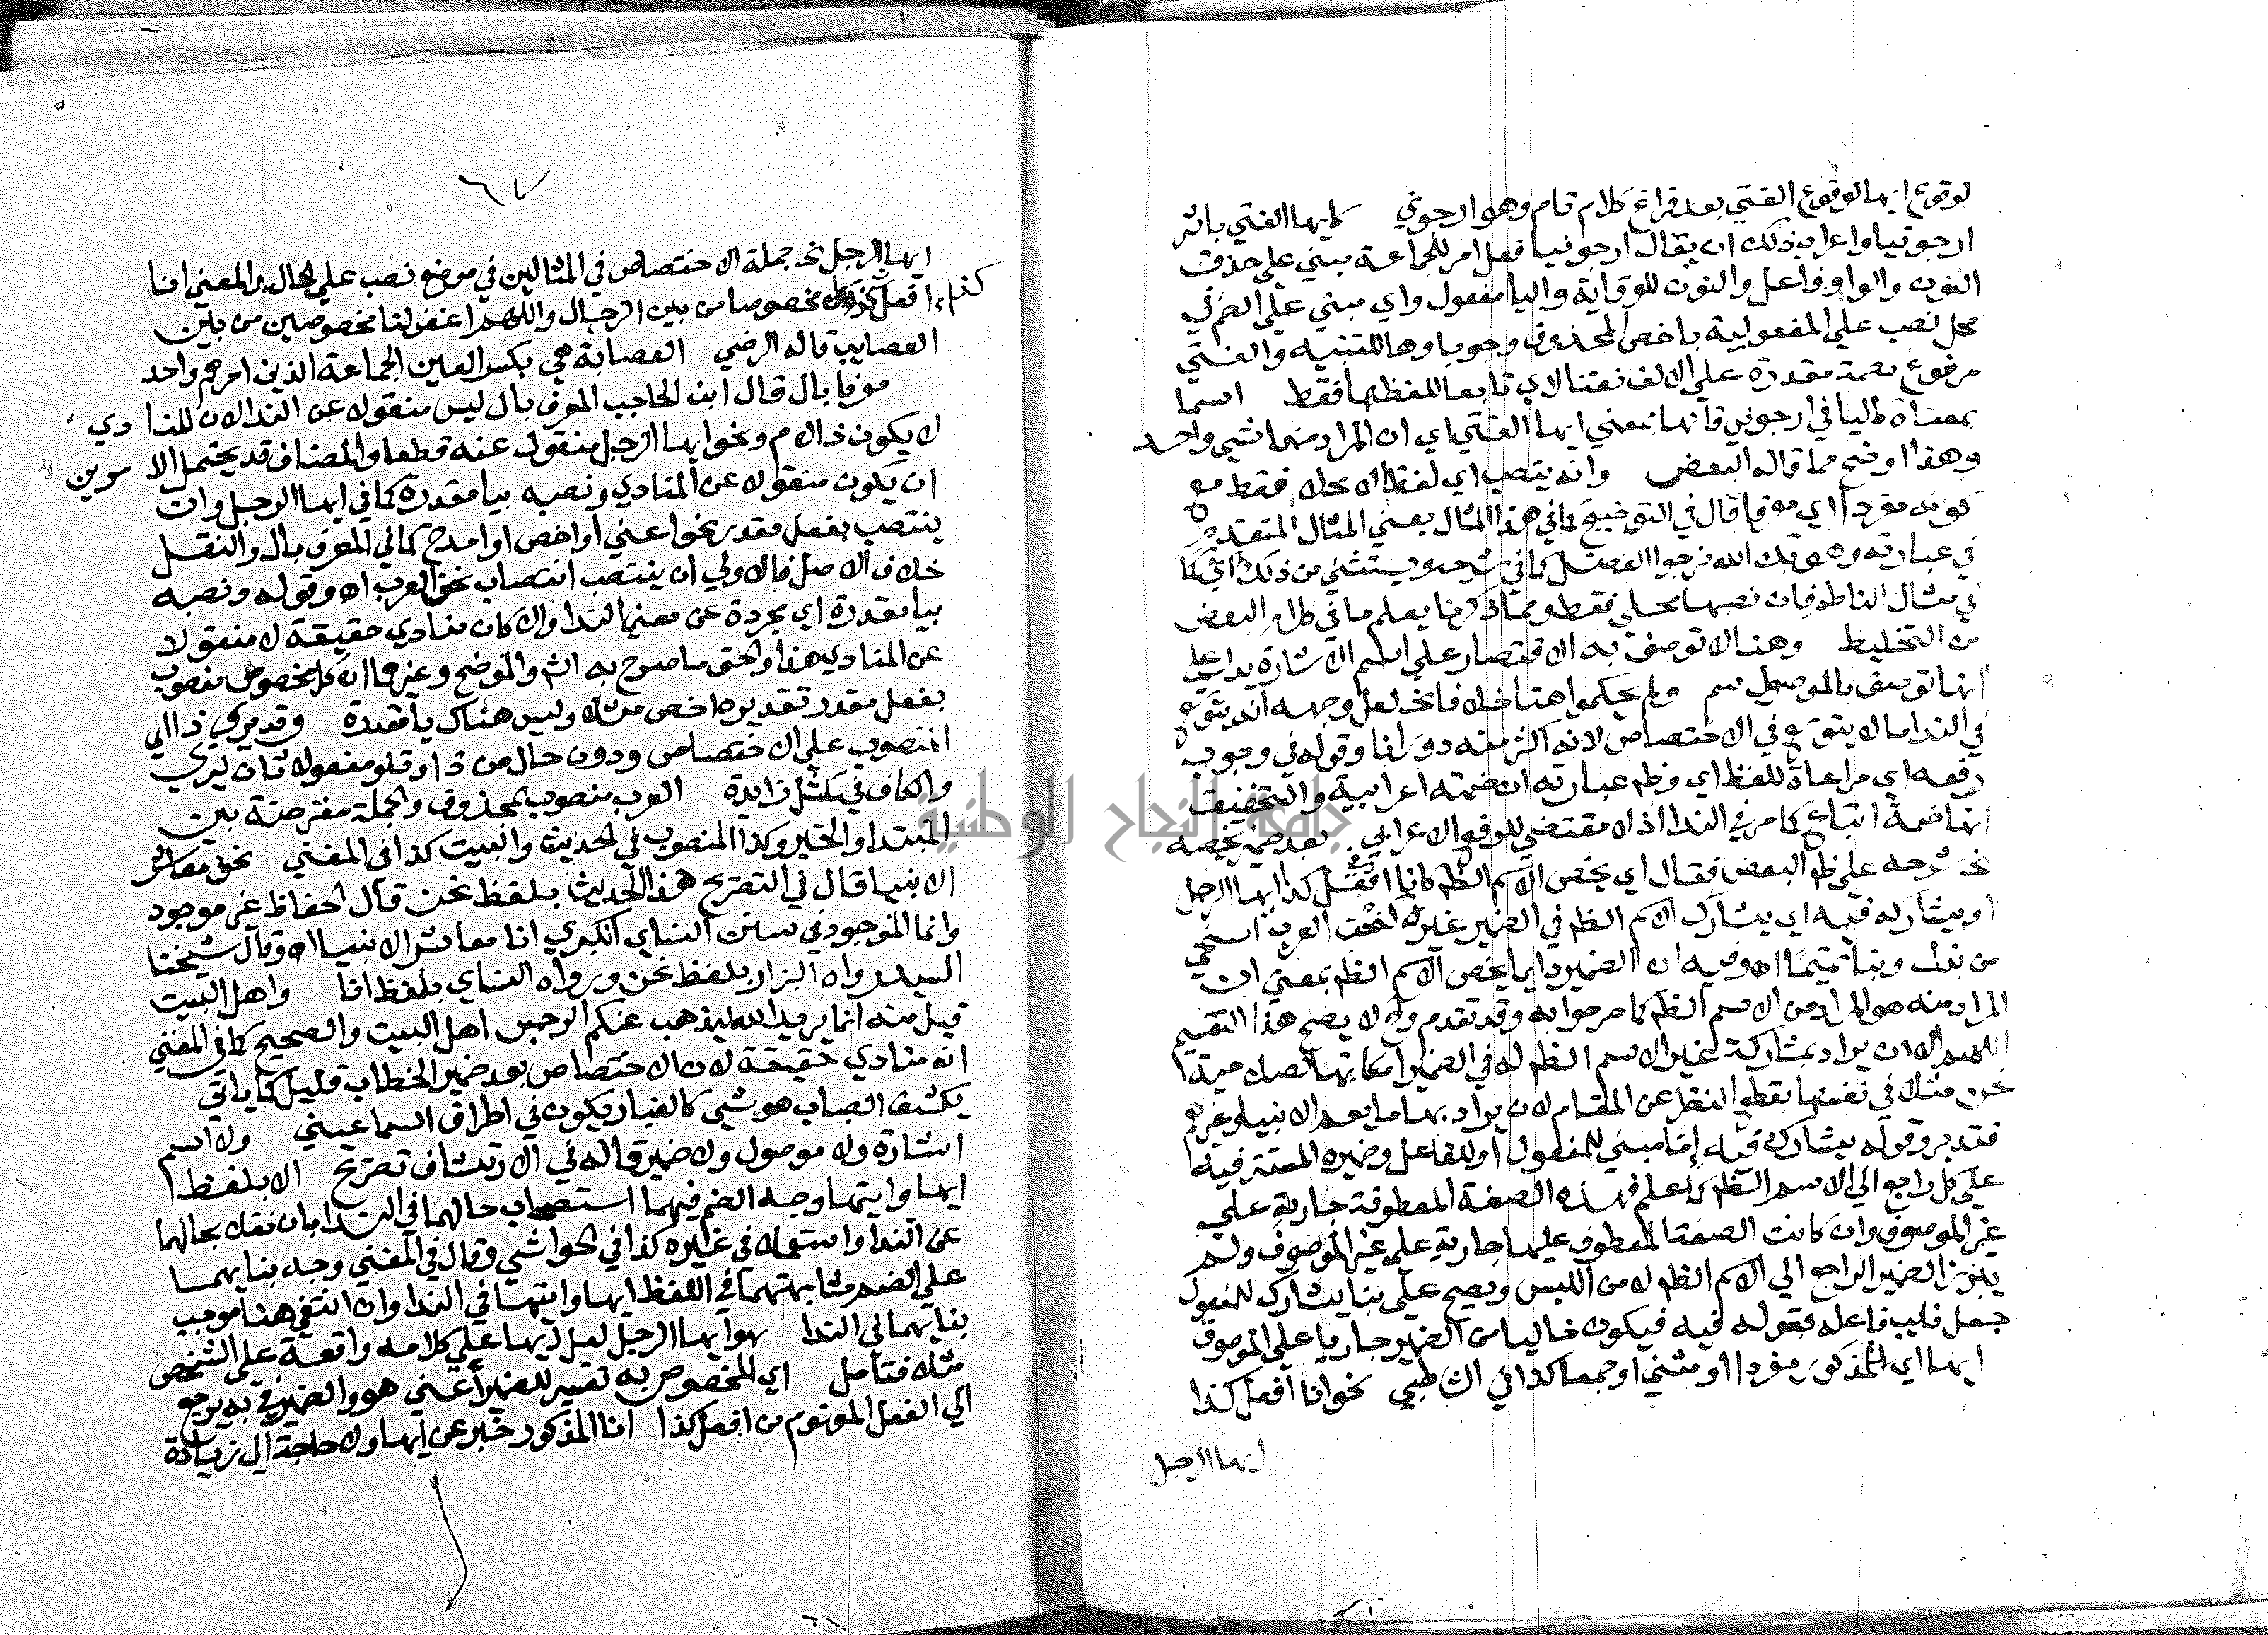 لوقوع ايها لوقوع الفتي بعد فراغ كلام تام وهو ارجوني كايها الفتي باثر
ارجونيا واعراب ذلك ان يقال ارجونيا فعل امر للجماعة مبني علي حذف
النون والواو فاعل والنون للوقاية واليا مفعول واي مبني علي الضم في
محل نصب علي المفعولية باخص المحذوف وجوبا وها للتنبيه والفتي
مرفوع بضمة مقدرة علي الالف نعتا لاي تابعا للفظها فقط اسما
بمعناة كاليا في ارجوني فانها بمعني ايها الفتي اي ان المراد منهما شي واحد
وهذا اوضح مما قاله البعض وانه ينتصب اي لفظا لا محلا فقط مع
كونه مفردا اي معرفا قال في التوضيح كما في هذا المثال يعني المثال المتقدم
في عبارته وهو بك الله نرجوا الفضل كما في شرحه ويستثني من ذلك اي كما
في مثال الناظم فان نصبها محلي فقط ومما ذكرنا يعلم ما في كلام البعض
من التخليط وهنا لا توصف به الاقتصار علي اسم الاشارة يدل علي
انها توصف بالموصول سم ولم يحكموا هنا خلافا نحـ لعل وجهه انه يتوسع
في الندا ما لا يتوسع في الاختصاص لانه اكثر منه دورانا وقوله في وجوب
رفعه اي مراعاة للفظ اي وظاهر عبارته ان ضمته اعرابية والتحقيق
انها ضمة اتباع كما مر في الندا اذ لا مقتضي للرفع الاعرابي بعد ضمير يخصه
نحـ شرحه علي ظـ البعض فقال اي يخص الاسم الظـ كانا افعل كذا ايها الرجل
او يشاركه فيه اي يشارك الاسم الظـ في الضمير غيره كنحن العرب اسخي
من بذل وبنا تميما اه وفيه ان الضمير دايما يخص الاسم الظـ بمعني ان
المراد منه هو المراد من الاسم الظـ كما صرحوا به وقد تقدم وح لا يصح هذا التقسيم
اللهم الا ان يراد بمشاركة غير الاسم الظـ له في الضمير امكانها لصلاحية
نحن مثلا في نفسها بقطع النظر عن المقام لان يراد بها ما يعم الانبيا وغيرهم
فتدبر وقوله يشارك فيه إمّا مبني للمفعول او للفاعل وضميره المستتر فيه
علي كل راجع الي الاسم الظـ كما علم فهذه الصفة المعطوفة جارية علي
غير الموصوف وان كانت الصفة المعطوف عليها جارية علي غير الموصوف ولم
يبرز الضمير الراجع الي الاسم الظـ لامن اللبس ويصح علي بنا يشارك للمفعول
جعل نايب فاعله قوله فيه فيكون خاليا من الضمير جاريا علي الموصوف
ايها اي المذكور مفردا او مثني او جمعا كذا في الشاطبي نحو انا افعل كذا
ايها الرجل
٦٧
ايها الرجل نحـ جملة الاختصاص في المثالين في موضع نصب علي الحال والمعني انا
افعل كذا مخصوصا من بين الرجال واللهم اغفر لنا مخصوصين من بين
كذا
العصايب قاله الرضي العصابة هي بكسر العين الجماعة الذين امرهم واحد
معرفا بال قال ابن الحاجب المعرف بال ليس منقولا عن الندا لان المنادي
لا يكون ذا لام ونحو ايها الرجل منقول عنه قطعا والمضاف قد يحتمل الامرين
ان يكون منقولا عن المنادي ونصبه بيا مقدرة كما في ايها الرجل وان
ينتصب بفعل مقدر نحو اعني او اخص او امدح كما في المعرف بال والنقل
خلاف الاصل فالاولي ان ينتصب انتصاب نحن العرب اه وقوله ونصبه
بيا مقدرة اي مجردة عن معني الندا والا كان منادي حقيقة لا منقولا
عن المنادي هذا والحق ما صرح به الش والموضح وغيرهما ان كل مخصوص منصوب
بفعل مقدر تقديره اخص مثلا وليس هناك يا مقدرة وقد يري ذا الي
المنصوب علي الاختصاص ودون حال من ذا وتلو مفعولا ثان ليري
والكاف في كمثل زايدة العرب منصوب بمحذوف والجملة معترضة بين
المبتدا والخبر وكذا المنصوب في الحديث والبيت كذا في المغني نحن معاشر
الانبيا قال في التصريح هذا الحديث بلفظ نحن قال الحفاظ غير موجود
وانما الموجود في سنن النساي الكبري انا معاشر الانبيا اه وقال شيخنا
السيد رواه البزار بلفظ نحن ورواه النساي بلفظ انا واهل البيت
قيل منه انما يريد الله ليذهب عنكم الرجس اهل البيت والصحيح كما في المغني
انه منادي حقيقة لان الاختصاص بعد ضمير الخطاب قليل كما ياتي
يكشف الضباب هو شي كالغبار يكون في اطراف السما عيني ولا اسم
اشارة ولا موصول ولا ضمير قاله في الارتشاف تصريح الا بلفظ
ايها وايتها وجه الضم فيهما استصحاب حالهما في الندا بان نقلا بحالهما
عن الندا واستعملا في غيره كذا في الحواشي وقال في المغني وجه بنايهما
علي الضم مشابهتهما في اللفظ ايها وايتها في الندا وان انتفي هنا موجب
بنايهما في الندا هو ايها الرجل لعل ايها علي كلامه واقعة علي الشخص
مثلا فتامل اي المخصوص به تفسير للضمير أعني هو والضمير في به يرجع
الي الفعل المفهوم من افعل كذا انا المذكور خبر عن ايها ولا حاجة الي زيادة
جامعة النجاح الوطنية